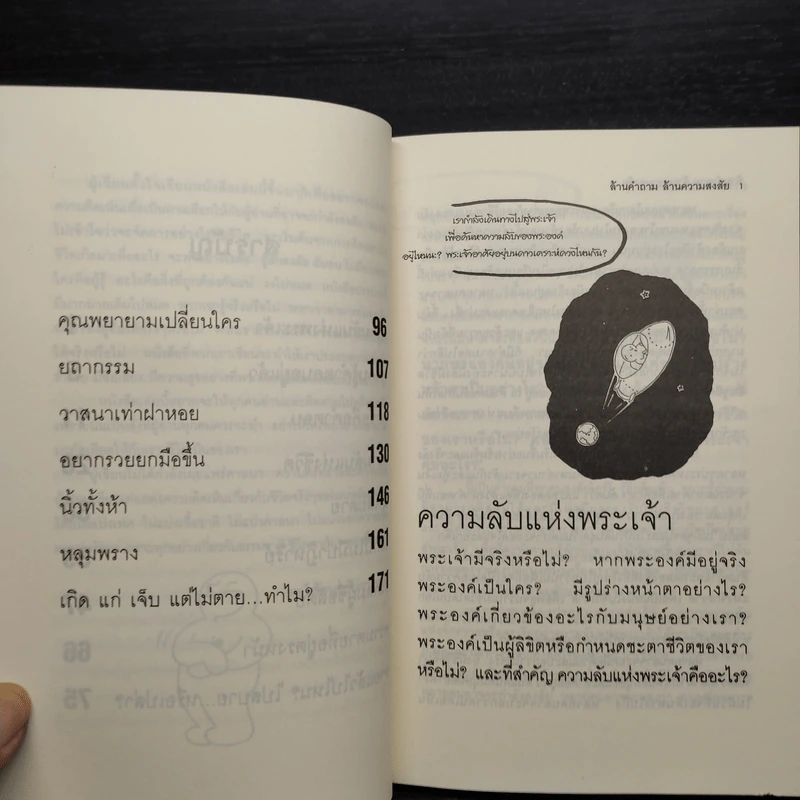 คุณพยายามเปลี่ยนใคร 96
ยถากรรม 107
วาสนาเท่าฝาหอย 118
อยากรวยยกมือขึ้น 130
นิ้วทั้งห้า 146
หลุมพราง 161
เกิด แก่ เจ็บ แต่ไม่ตาย...ทำไม? 171
ล้านคำถาม ล้านความสงสัย 1
เรากำลังเดินทางไปสู่พระเจ้า
เพื่อค้นหาความลับของพระองค์
อยู่ไหนนะ? พระเจ้าอาศัยอยู่บนดาวเคราะห์ดวงไหนกัน?
ความลับแห่งพระเจ้า
พระเจ้ามีจริงหรือไม่? หากพระองค์มีอยู่จริง
พระองค์เป็นใคร? มีรูปร่างหน้าตาอย่างไร?
พระองค์เกี่ยวข้องอะไรกับมนุษย์อย่างเรา?
พระองค์เป็นผู้ลิขิตหรือกำหนดชะตาชีวิตของเรา
หรือไม่? และที่สำคัญ ความลับแห่งพระเจ้าคืออะไร?